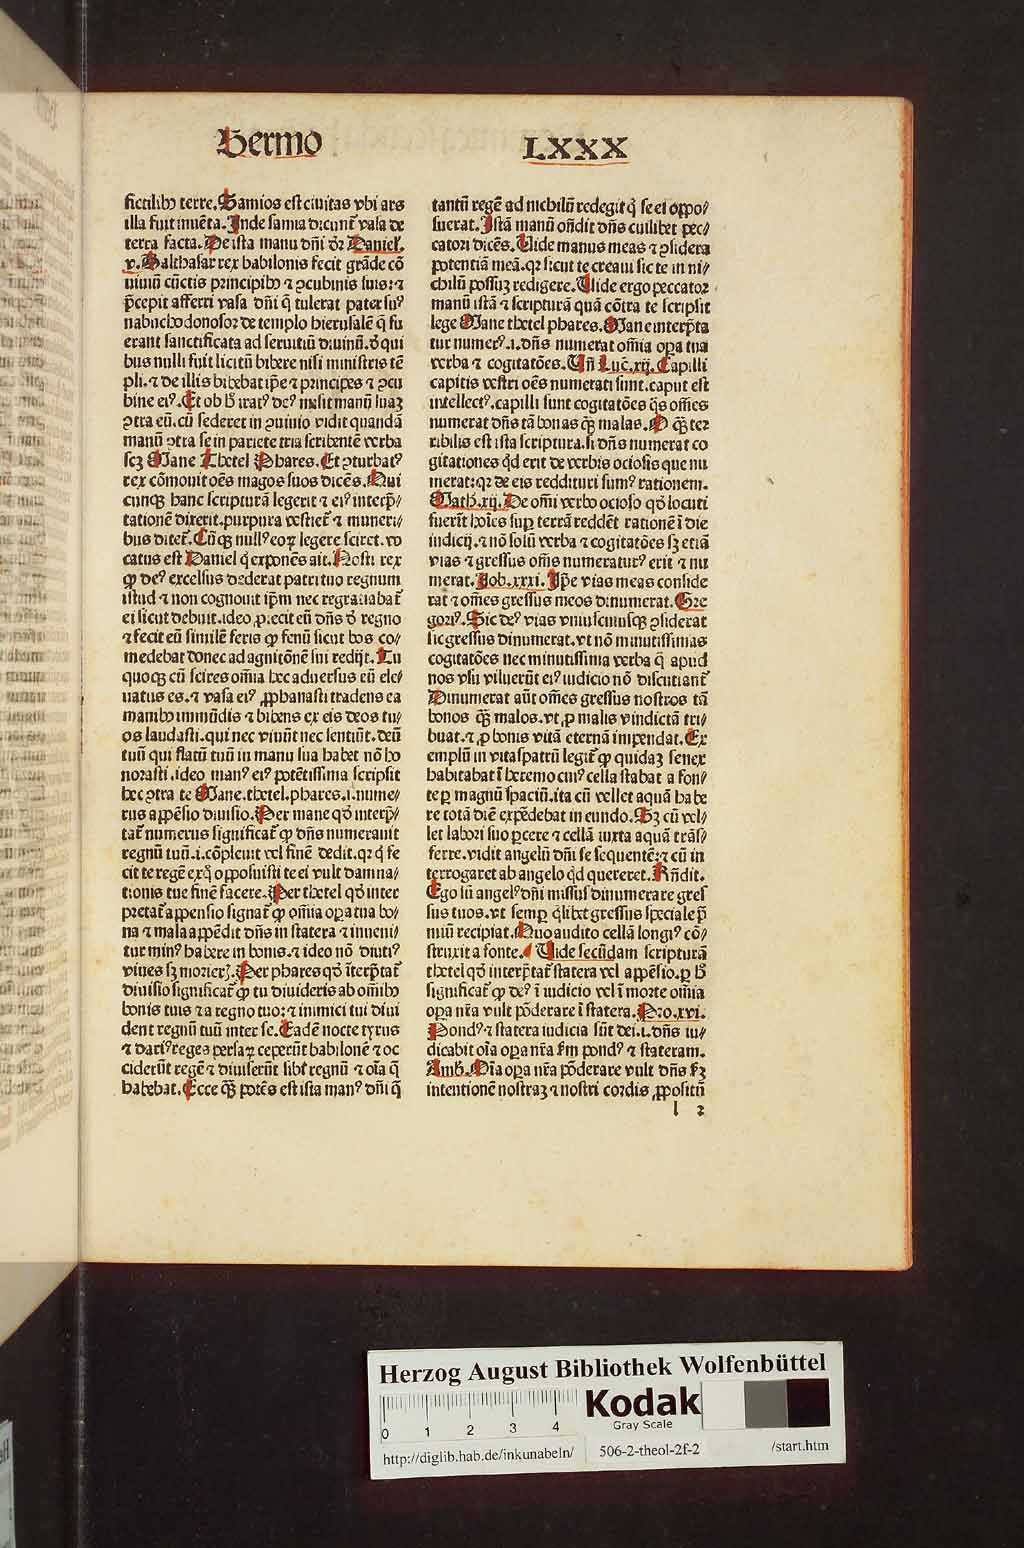 Sermo LXXX
fictilibꝫ terre. Samios est ciuitas vbi ars
illa fuit inuēta. Inde samia dicunt᷑ vasa de
terra facta. De ista manu dn̄i dr̄ Daniel.
v. Balthasar rex babilonis fecit grāde cō
uiuiū cūctis principibꝫ ⁊ ꝯcubinis suis: ⁊
p̄cepit afferri vasa dn̄i q̄ tulerat pater suꝰ
nabuchodonosor de templo hierusalē q̄ fu
erant sanctificata ad seruitiū diuinū. de qui
bus nulli fuit licitū bibere nisi ministris tē
pli. ⁊ de illis bibebat ip̄e ⁊ principes ⁊ ꝯcu
bine eiꝰ. Et ob h̄ iratꝰ deꝰ misit manū suaꝫ
ꝯtra eū. cū sederet in ꝯuiuio vidit quandā
manū ꝯtra se in pariete tria scribentē verba
scꝫ Mane Thetel Phares. Et ꝯturbatꝰ
rex cōmouit oēs magos suos dicēs. Qui
cunqꝫ hanc scripturā legerit ⁊ eiꝰ interp̄/
tationē dixerit. purpura vestiet᷑ ⁊ muneri/
bus ditet᷑. Cūqꝫ nullꝰ eoꝝ legere sciret. vo
catus est Daniel q̇ exponēs ait. Nosti rex
ꝙ deꝰ excelsus dederat patri tuo regnum
istud ⁊ non cognouit ip̄m nec regratiabat᷑
ei sicut debuit. ideo ꝓiecit eū dn̄s de regno
⁊ fecit eū similē feris ꝙ fenū sicut bos co/
medebat donec ad agnitōnē sui redijt. Tu
quoqꝫ cū scires om̄ia hec aduersus eū ele/
uatus es. ⁊ vasa eiꝰ ꝓphanasti tradens ea
manibꝫ immūdis ⁊ bibens ex eis deos tu/
os laudasti. qui nec viuūt nec sentiūt. deū
tuū qui flatū tuū in manu sua habet nō ho
norasti. ideo manꝰ eiꝰ potētissima scripsit
hec ꝯtra te Mane. thetel. phares .i. nume/
rus appēsio diuisio. Per mane qd̄ interp̄/
tat᷑ numerus significat᷑ ꝙ dn̄s numerauit
regnū tuū .i. cōpleuit vel finē dedit. qꝛ q̇ fe
cit te regē exq̇ opposuisti te ei vult damna/
tionis tue finē facere. Per thetel qd̄ inter
pretat᷑ appensio signat᷑ ꝙ om̄ia opa tua bo/
na ⁊ mala appēdit dn̄s in statera ⁊ inueni/
tur minꝰ habere in bonis. ⁊ ideo nō diutiꝰ
viues sꝫ morierꝭ. Per phares qd̄ īterp̄tat᷑
diuisio significat᷑ ꝙ tu diuideris ab om̄ibꝫ
bonis tuis ⁊ a regno tuo: ⁊ inimici tui diui
dent regnū tuū inter se. Eadē nocte tyrus
⁊ dariꝰ reges persaꝝ ceperūt babilonē ⁊ oc
ciderūt regē ⁊ diuiserūt sibi regnū ⁊ oīa q̄
habebat. Ecce qꝫ̄ potēs est ista manꝰ dn̄i q̄
tantū regē ad nichilū redegit q̇ se ei oppo/
suerat. Istā manū on̄dit dn̄s cuilibet pec/
catori dicēs. Uide manus meas ⁊ ꝯsidera
potentiā meā. qꝛ sicut te creaui sic te in ni/
chilū possuꝫ redigere. Uide ergo peccator
manū istā ⁊ scripturā quā cōtra te scripsit
lege Mane thetel phares. Mane interp̄ta
tur numerꝰ .i. dn̄s numerat om̄ia opa tua
verba ⁊ cogitatōes. Un̄ Luc̄. xij. Capilli
capitis vestri oēs numerati sunt. caput est
intellectꝰ. capilli sunt cogitatōes q̄s om̄es
numerat dn̄s tā bonas qꝫ̄ malas. O qꝫ̄ ter
ribilis est ista scriptura. si dn̄s numerat co
gitationes qd̄ erit de verbis ociosis que nu
merat: qꝛ de eis reddituri sumꝰ rationem.
Math. xij. De om̄i verbo ocioso qd̄ locuti
fuerīt hoīes suꝑ terrā reddēt rationē ī die
iudicij. ⁊ nō solū verba ⁊ cogitatōes sꝫ etiā
vias ⁊ gressus om̄s numeraturꝰ erit ⁊ nu
merat. Job. xxxi. Ip̄e vias meas conside
rat ⁊ om̄es gressus meos dinumerat. Gre
goriꝰ. Sic deꝰ vias vniuscuiusqꝫ ꝯsiderat
sic gressus dinumerat. vt nō minutissimas
cogitatōes nec minutissima verba q̄ apud
nos vsu viluerūt eiꝰ iudicio nō discutiant᷑
Dinumerat aūt om̄es gressus nostros tā
bonos qꝫ̄ malos. vt ꝓ malis vindictā tri/
buat. ⁊ ꝓ bonis vitā eternā impendat. Ex
emplū in vitaspatrū legit᷑ ꝙ quidaꝫ senex
habitabat ī heremo cuiꝰ cella stabat a fon/
te ꝑ magnū spaciū. ita cū vellet aquā habe
re totā diē expēdebat in eundo. Sꝫ cū vel/
let labori suo ꝑcere ⁊ cellā iuxta aquā trās/
ferre. vidit angelū dn̄i se sequentē: ⁊ cū in
terrogaret ab angelo qd̄ quereret. Rn̄dit.
Ego sū angelꝰ dn̄i missus dinumerare gres
sus tuos. vt semꝑ q̇libet gressus speciale p̄
miū recipiat. Quo audito cellā longiꝰ cō/
struxit a fonte. Uide secūdam scripturā
thetel qd̄ interp̄tat᷑ statera vel appēsio. ꝑ h̄
significat᷑ ꝙ deꝰ ī iudicio vel ī morte om̄ia
opa nr̄a vult pōderare ī statera. Pro. xvi.
Pondꝰ ⁊ statera iudicia sūt dei .i. dn̄s iu/
dicabit oīa opa nr̄a ẜm pondꝰ ⁊ stateram.
Amb̄. Oīa opa nr̄a pōderare vult dn̄s ẜꝫ
intentionē nostraꝫ ⁊ nostri cordis ꝓpositū
l 2
Herzog August Bibliothek Wolfenbüttel
Kodak
Gray Scale
0 1 2 3 4
http://diglib.hab.de/inkunabeln/ 506-2-theol-2f-2 /start.htm